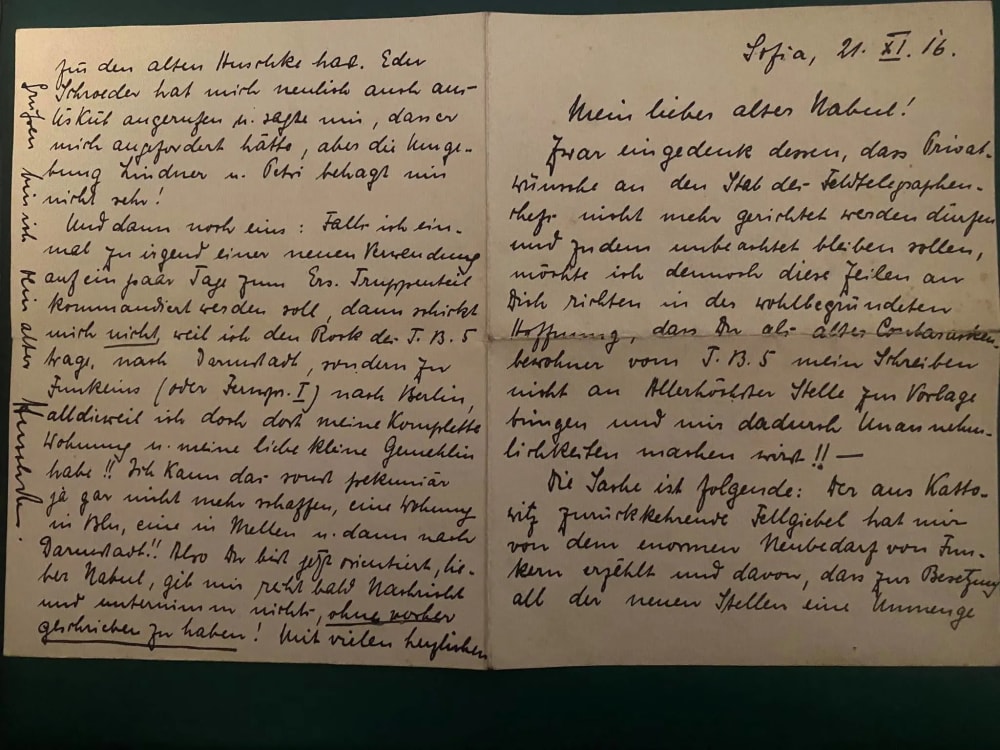 Sofia, 21. XI. 16.
Mein lieber alter Nabul!
Zwar eingedenk dessen, dass Privat-
wünsche an den Stab des Feldtelegraphen-
chefs nicht mehr gerichtet werden dürfen
und zudem unbeachtet bleiben sollen,
möchte ich dennoch diese Zeilen an
Dich richten in der wohlbegründeten
Hoffnung, dass Du als alter
bewohner vom T. B. 5 mein Schreiben
nicht an Allerhöchster Stelle zur Vorlage
bringen und mir dadurch Unannehm-
lichkeiten machen wirst!! —
Die Sache ist folgende: Der aus Katto-
witz zurückkehrende Fellgiebel hat mir
von dem enormen Neubedarf von Fun-
kern erzählt und davon, dass zur Besetzung
all der neuen Stellen eine Unmenge
zu den alten Huschke hat. Eden
Schroeder hat mich neulich auch aus
Üsküb angerufen u. sagte mir, dass er
mich angefordert hätte, aber die Umge-
bung Lindner u. Petri behagt mir
nicht sehr!
Und dann noch eins: Falls ich ein-
mal zu irgend einer neuen Verwendung
auf ein paar Tage zum Ers. Truppenteil
kommandiert werden soll, dann schickt
mich nicht, weil ich den Rock des T. B. 5
trage, nach Darmstadt, sondern zu
Funkeins (oder Fernspr. I) nach Berlin,
alldieweil ich doch dort meine komplette
Wohnung u. meine liebe kleine Gemahlin
habe!! Ich kann das sonst pekuniär
ja gar nicht mehr schaffen, eine Wohnung
in Bln, eine in Mellen u. dann nach
Darmstadt!! Also Du bist jetzt orientiert, lie-
ber Nabul, gib mir recht bald Nachricht
und unternimm nichts, ohne vorher
geschrieben zu haben! Mit vielen herzlichen
Grüßen bin ich Dein alter